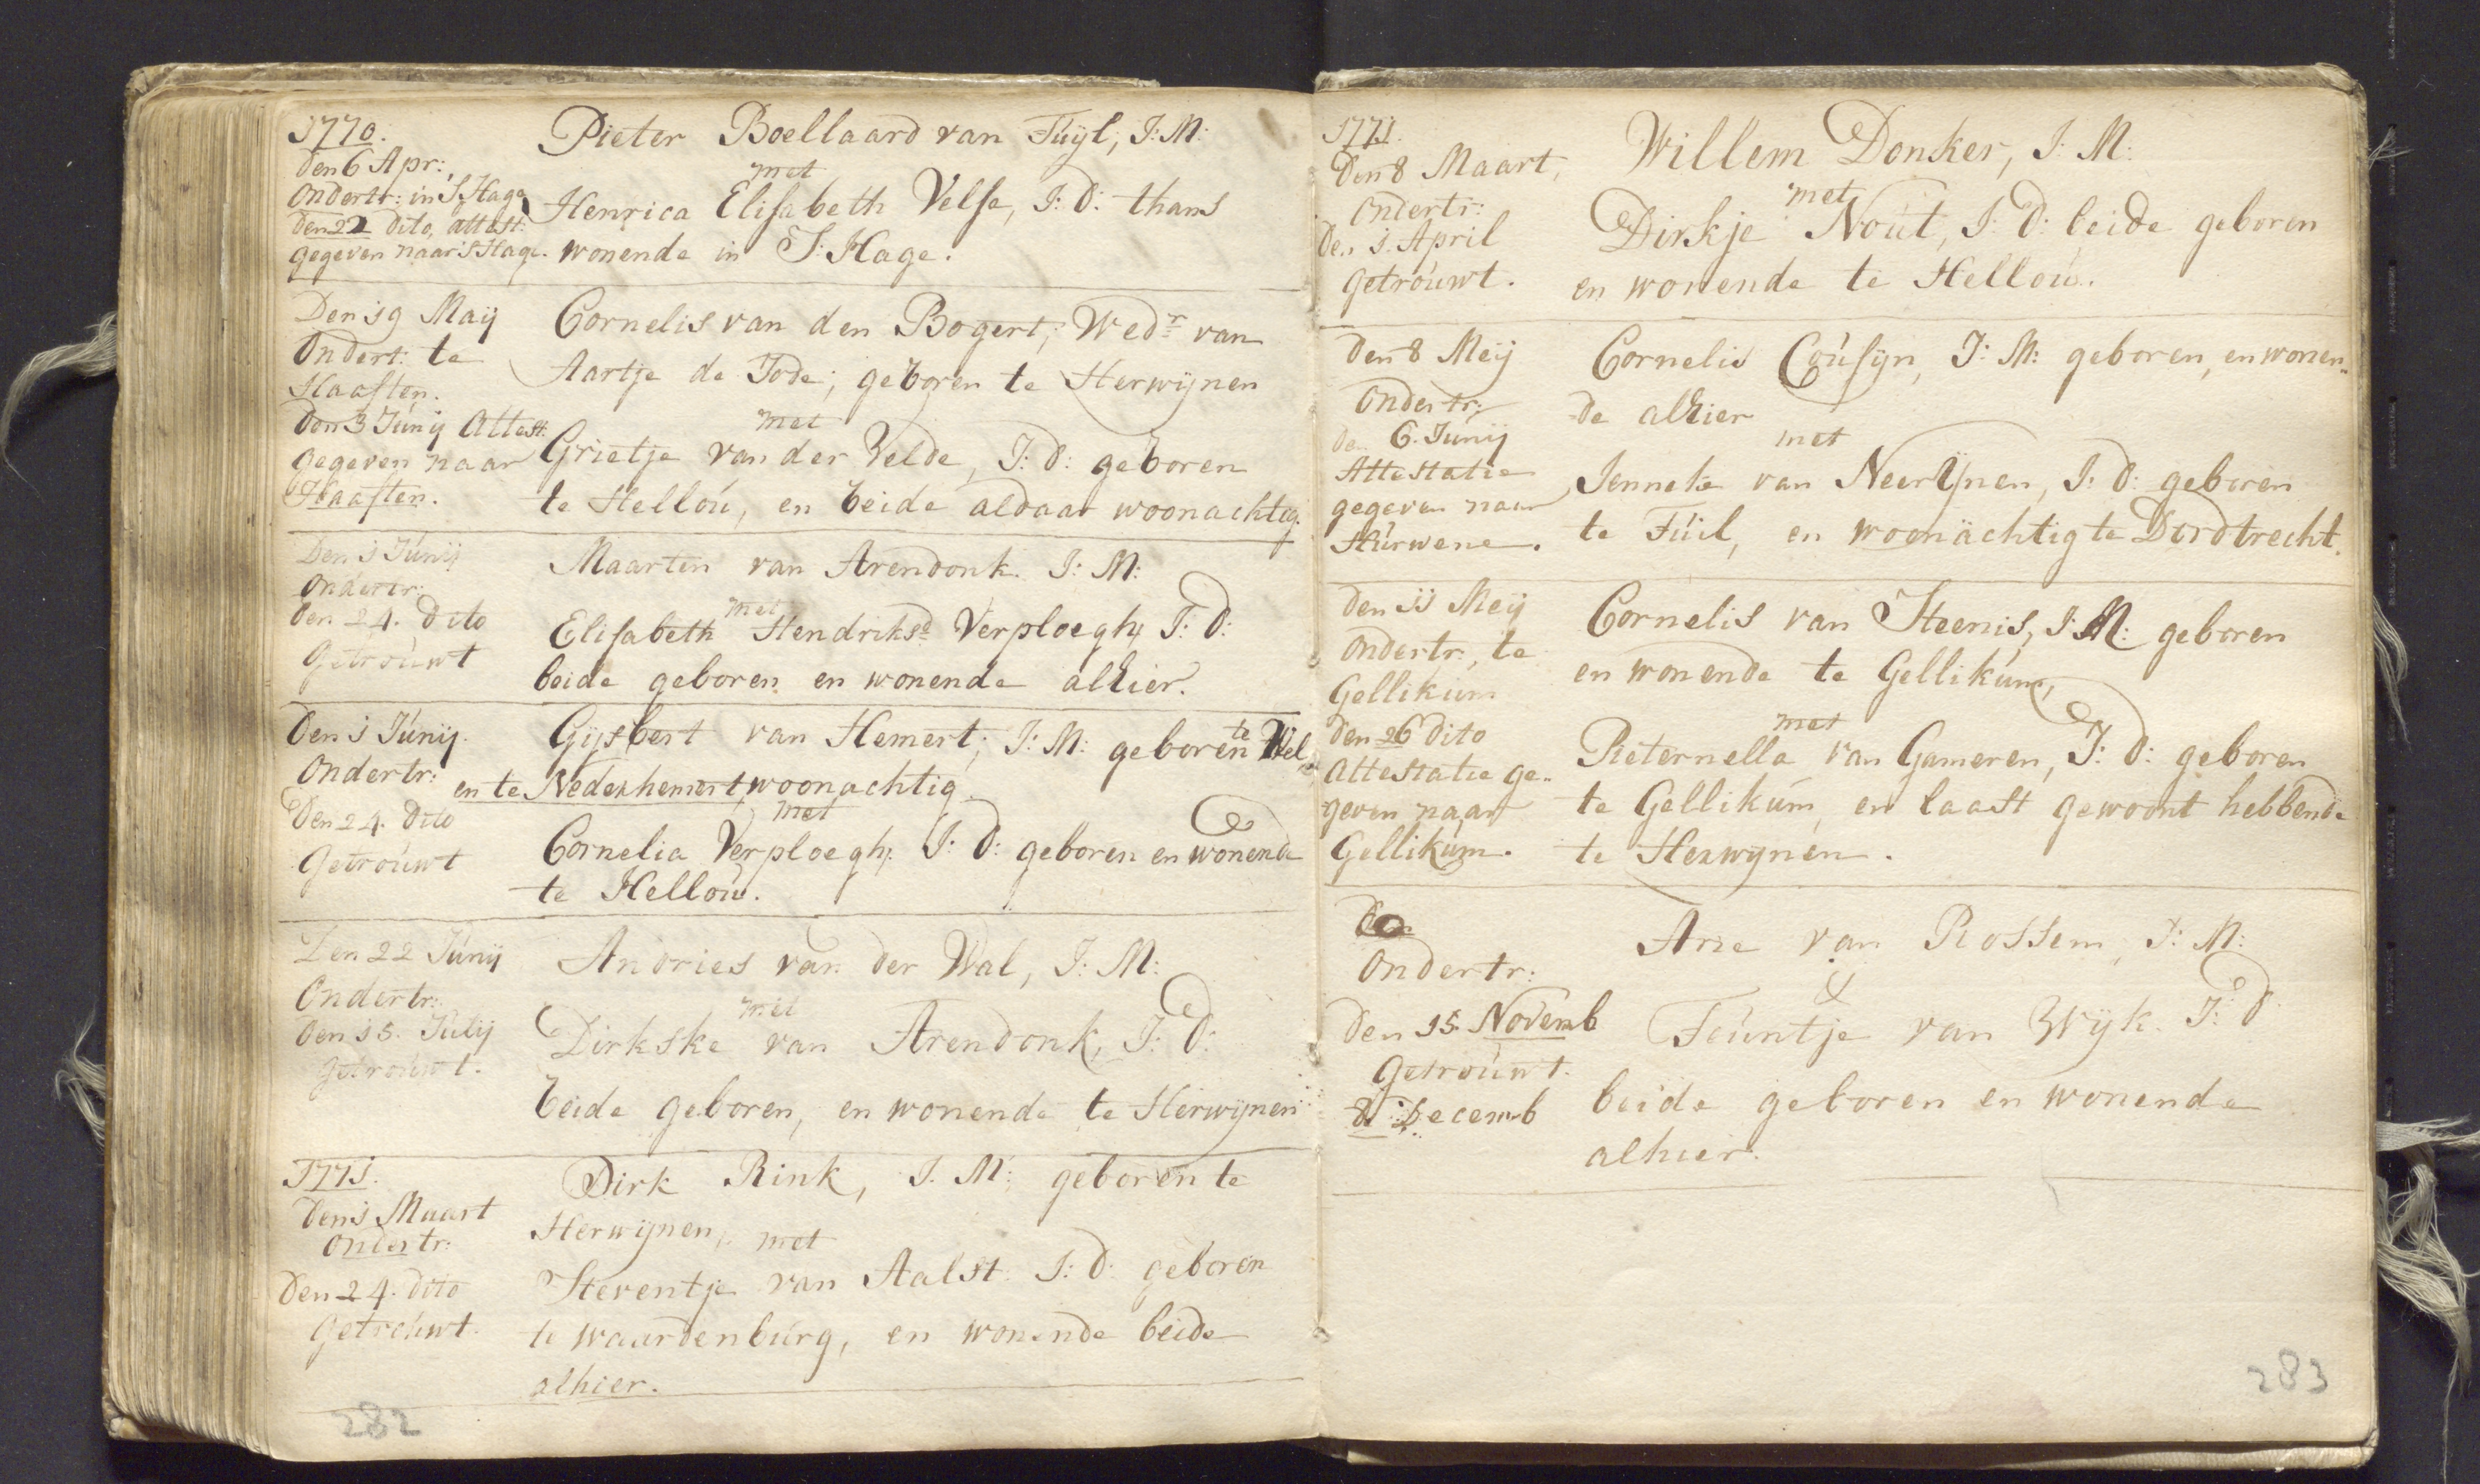 1770.
den 6 Apr:
Ondertr: in S. Hage
den 22 dito, attest:
gegeven naar S Hage.
Pieter Boellaard van Tuÿl, J: M:
met
Henrica Elisabeth Velse, J: D: thans
wonende in S. Hage.
Den 19 Maij
Ondert: te
Haaften.
den 3 Junij Attest:
gegeven naar
Haaften.
Cornelis van den Bogert, Wedr van
Aartje de Jode; geboren te Herwijnen
met
Grietje van der Velde, J: D: geboren
te Hellou, en beide aldaar woonachtig.
Den 1 Junij
Ondertr:
den 24. dito
Getrouwt
Maarten van Arendonk. J: M:
met
Elisabeth Hendriksd Verploegh, J: D:
beide geboren en wonende alhier.
Den 1 Junij.
Ondertr:
Den 24. dito
Getrouwt
Gijsbert van Hemert; J: M: geboren te Wel
en te Nederhemert woonachtig
met
Cornelia Verploegh, J: D: geboren en wonende
te Hellou.
Den 22 Junij
Ondertr:
den 15. Julij
getrouwt.
Andries van der Wal, J: M:
met
Dirkske van Arendonk, J: D:
beide geboren, en wonende te Herwijnen
1771.
den 1 Maart
Ondertr:
den 24. dito
Getrouwt.
Dirk Rink, J. M: geboren te
Herwijnen, met
Steventje van Aalst. J: D: geboren
te waardenburg, en wonende beide
alhier.
282
1771.
Den 8 Maart,
Ondertr:
Den 1. April
getrouwt.
Willem Donker, J: M:
met
Dirkje Nout, J: D: beide geboren
en wonende te Hellou.
den 8 Meij
Ondertr:
de. 6. Junij
Attestatie
gegeven naar
Hurwene.
Cornelis Cousijn, J: M: geboren, en wonen„
de alhier
met
Jenneke van Neerijnen, J: D: geboren
te Tuil, en woonachtig te Dordtrecht.
den 11 Meij
Ondertr:, te
Gellikum
den 26 dito
Attestatie ge„
geven naar
Gellikum.
Cornelis van Steenis, J: M: geboren
en wonende te Gellikum,
met
Pieternella van Gameren, J: D: geboren
te Gellikum, en laast gewoont hebbende
te Herwijnen.
Den
Ondertr:
den 15. Novemb
Getrouwt.
8 Decemb
Arie van Rossem, J: M:
&
Teuntje van Wijk. J: D:
beide geboren en wonende
alhier.
283